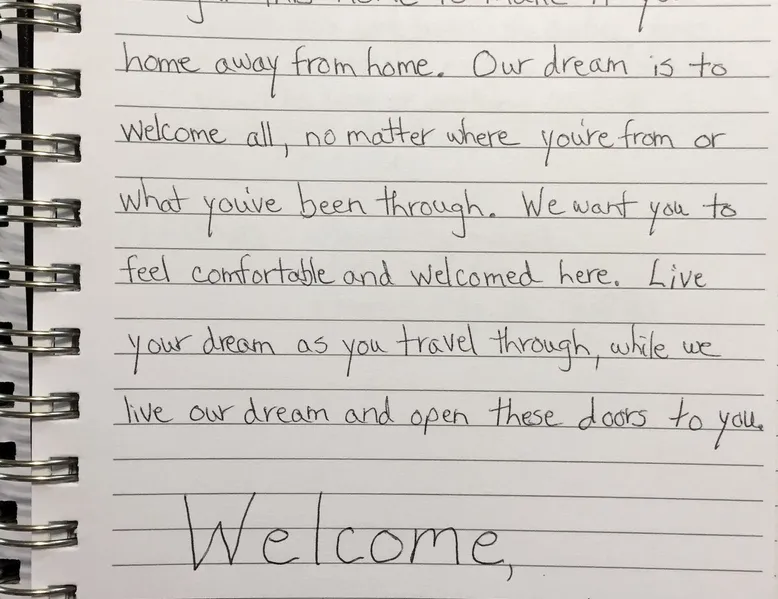 this home to make it
home away from home. Our dream is to
welcome all, no matter where you're from or
what you've been through. We want you to
feel comfortable and welcomed here. Live
your dream as you travel through, while we
live our dream and open these doors to you.
Welcome,